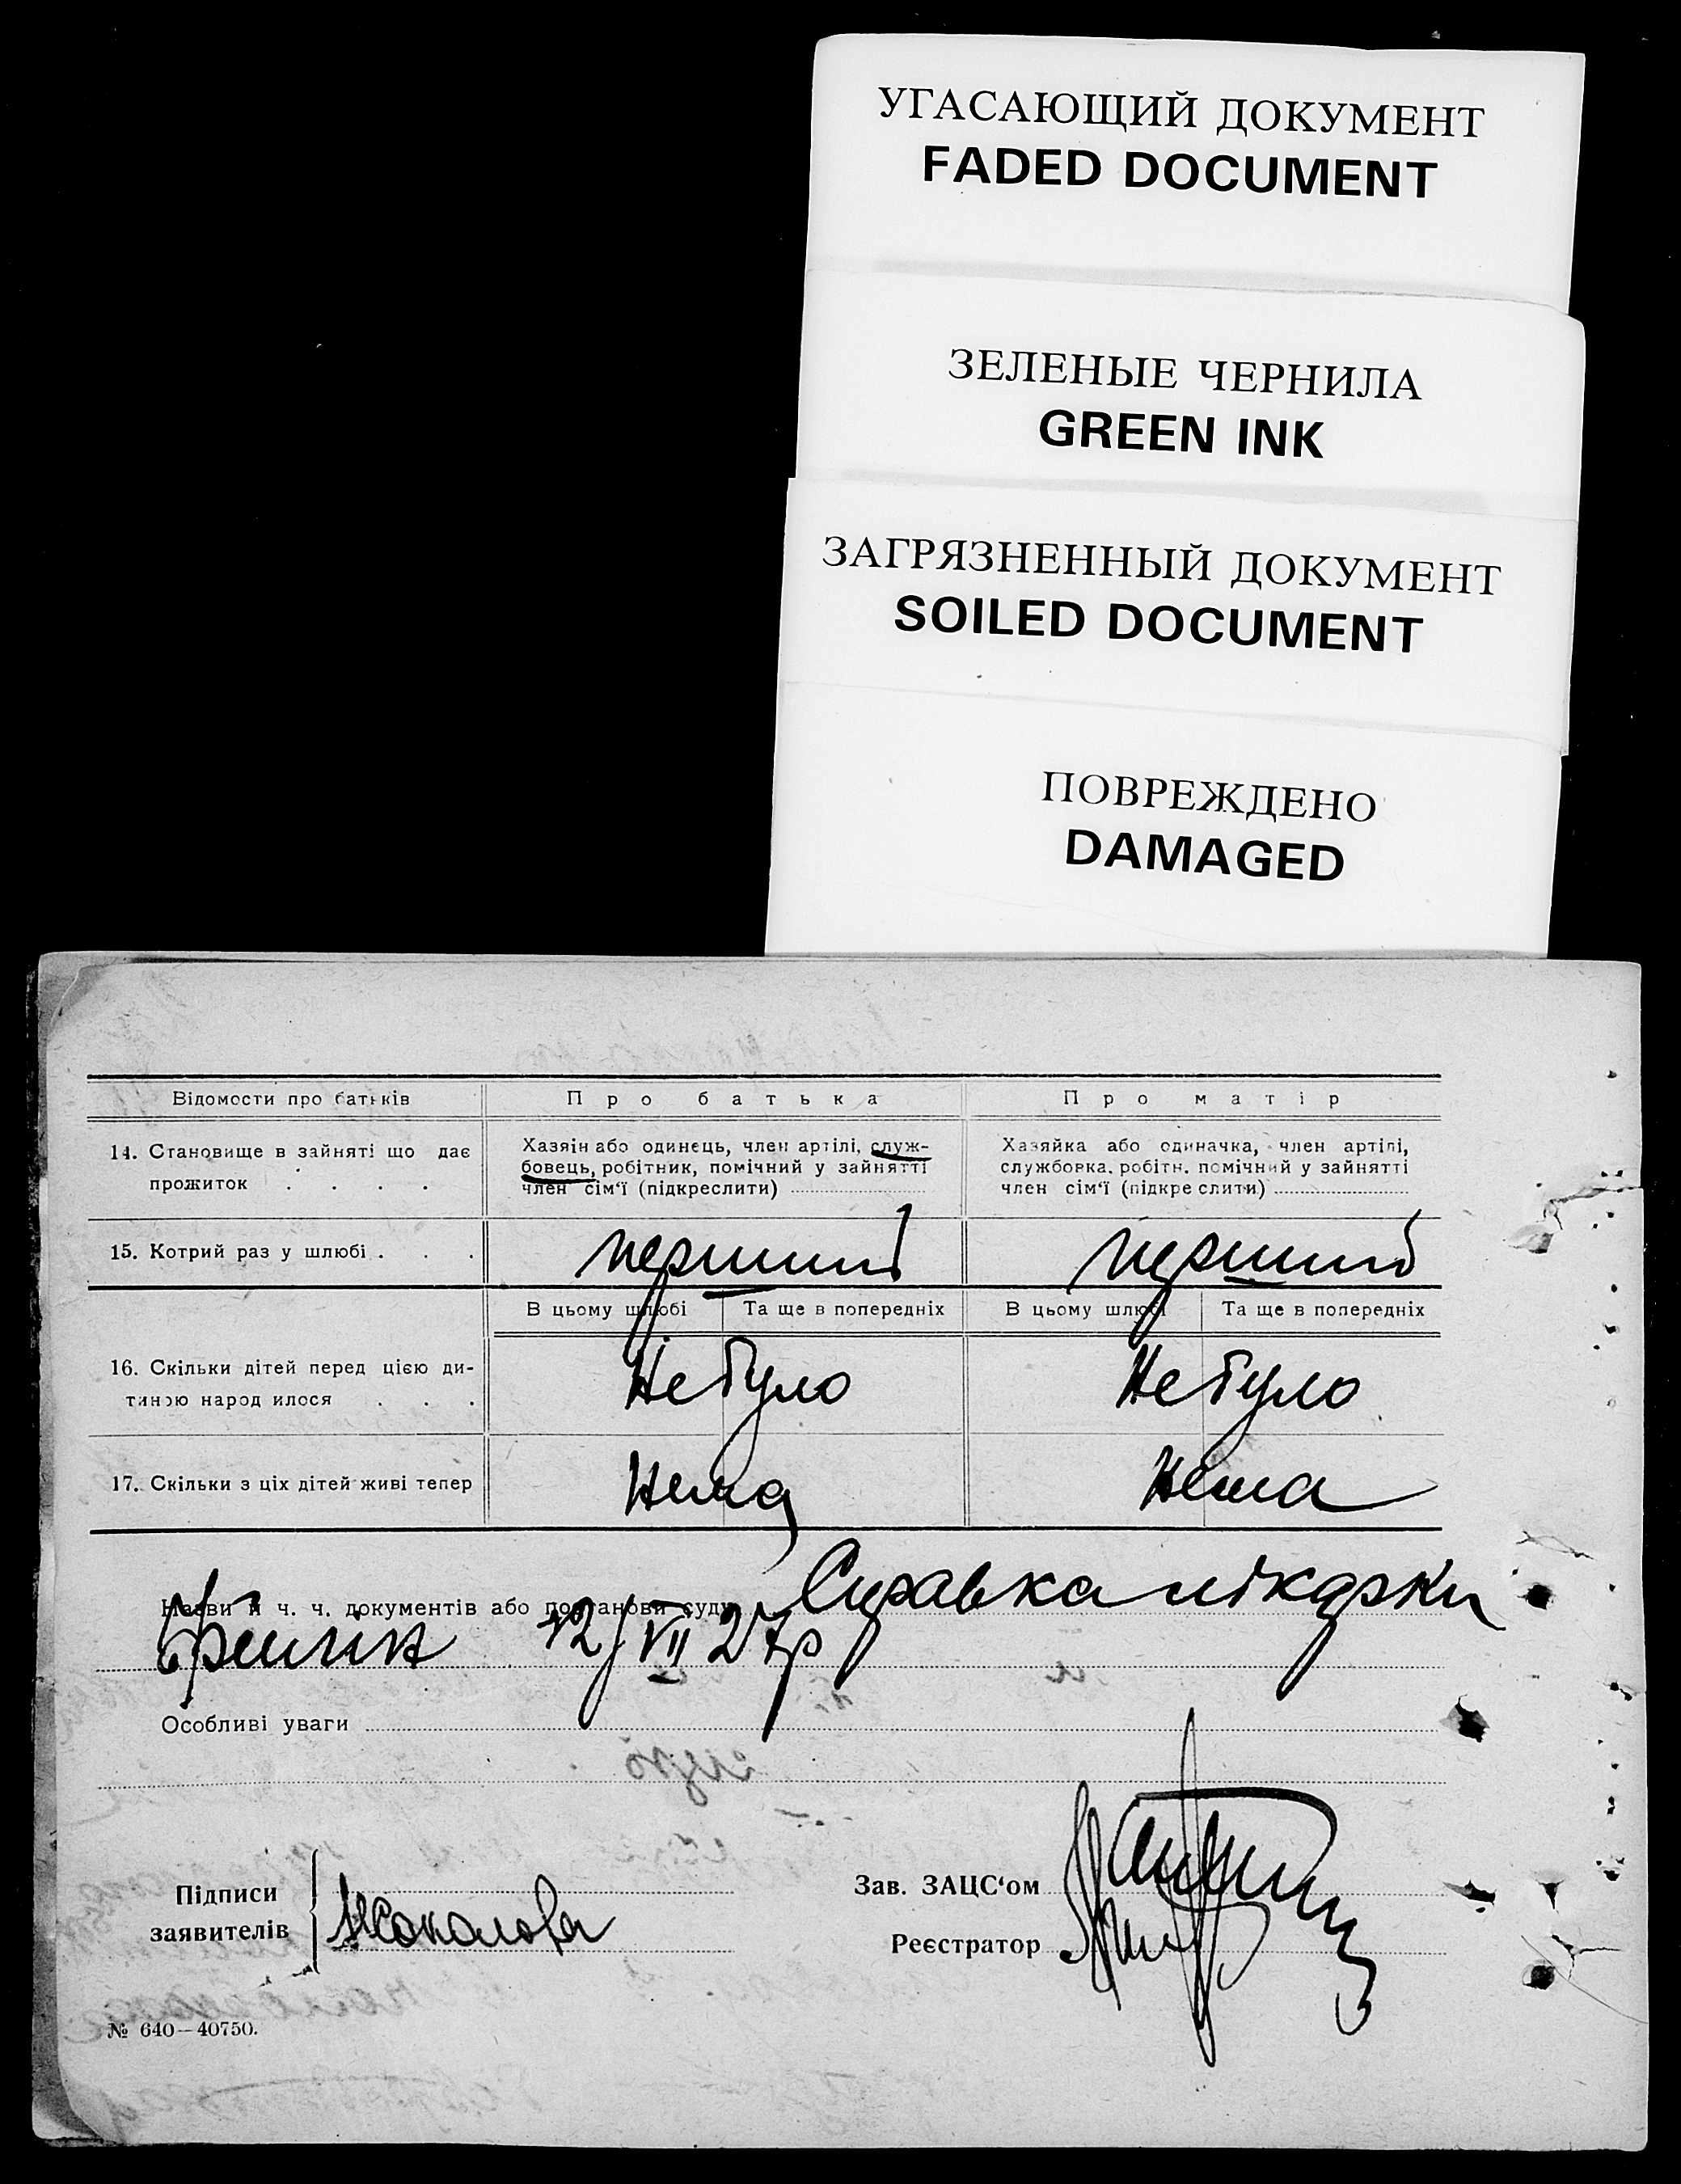 УГАСАЮЩИЙ ДОКУМЕНТ
FADED DOCUMENT
ЗЕЛЕНЫЕ ЧЕРНИЛА
GREEN INK
ЗАГРЯЗНЕННЫЙ ДОКУМЕНТ
SOILED DOCUMENT
ПОВРЕЖДЕНО
DAMAGED
Відомости про батьків
Про батька
Про матір
14. Становище в зайняті що дає
прожиток . . . .
Хазяїн або одинець, член артілі, служ-
бовець, робітник, помічний у зайнятті
член сім‘ї (підкреслити)
Хазяйка або одиначка, член артілі,
службовка, робітн. помічний у зайнятті
член сім‘ї (підкреслити)
15. Котрий раз у шлюбі . . .
перший
перший
В цьому шлюбі
Та ще в попередніх
В цьому шлюбі
Та ще в попередніх
16. Скільки дітей перед цією ди-
тиною народилося . . .
Не було
Не було
17. Скільки з ціх дітей живі тепер
Нема
Нема
Назви й ч. ч. документів або постанови суду Справка лікарки
12/VII 27р
Особливі уваги
Підписи
заявителів
Зав. ЗАЦС‘ом
Реєстратор
№ 640—40750.